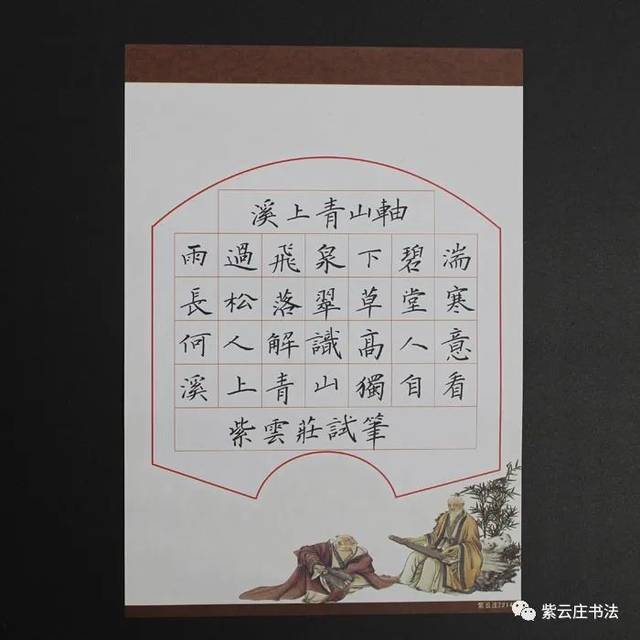 溪上青山軸
雨過飛泉下碧湍
長松落翠草堂寒
何人解識高人意
溪上青山獨自看
紫雲莊試筆
紫云庄书法